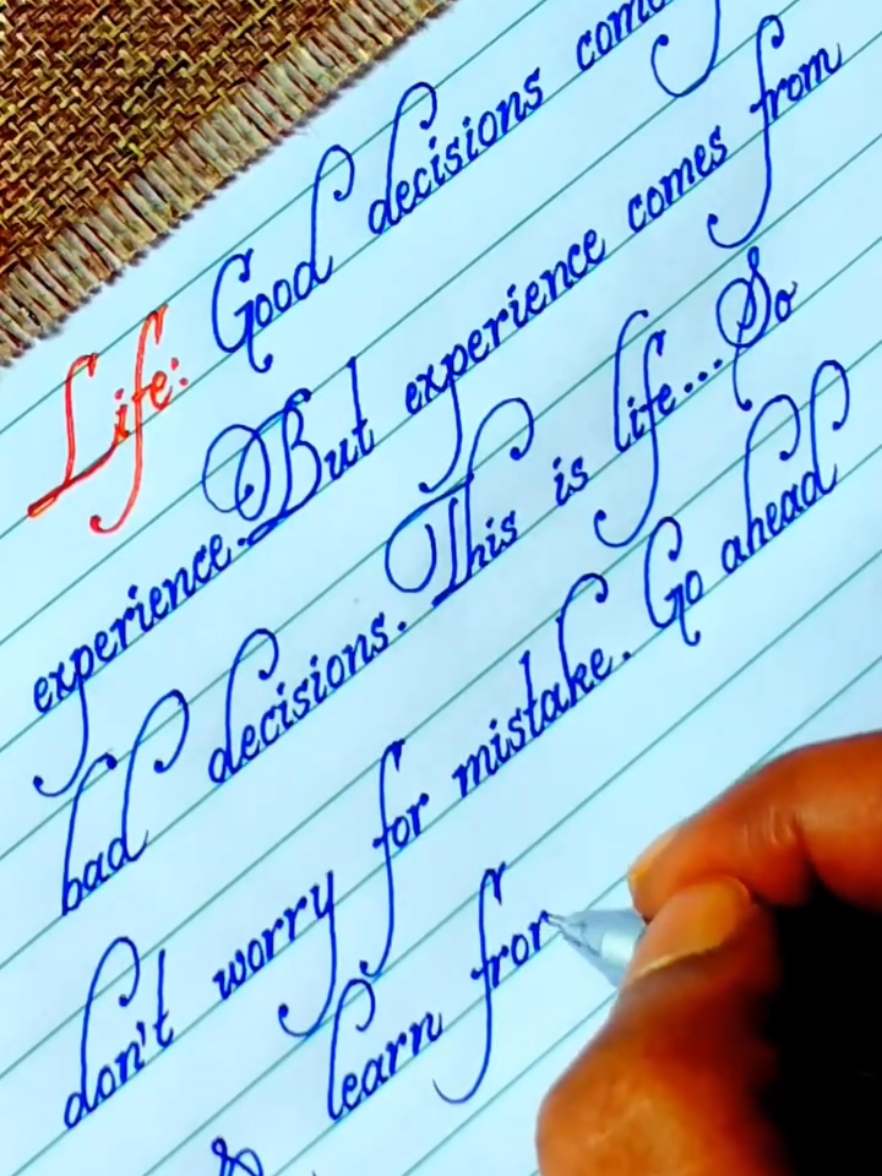 Life: Good decisions come
experience. But experience comes from
bad decisions. This is life... So
don't worry for mistake. Go ahead
& learn fror